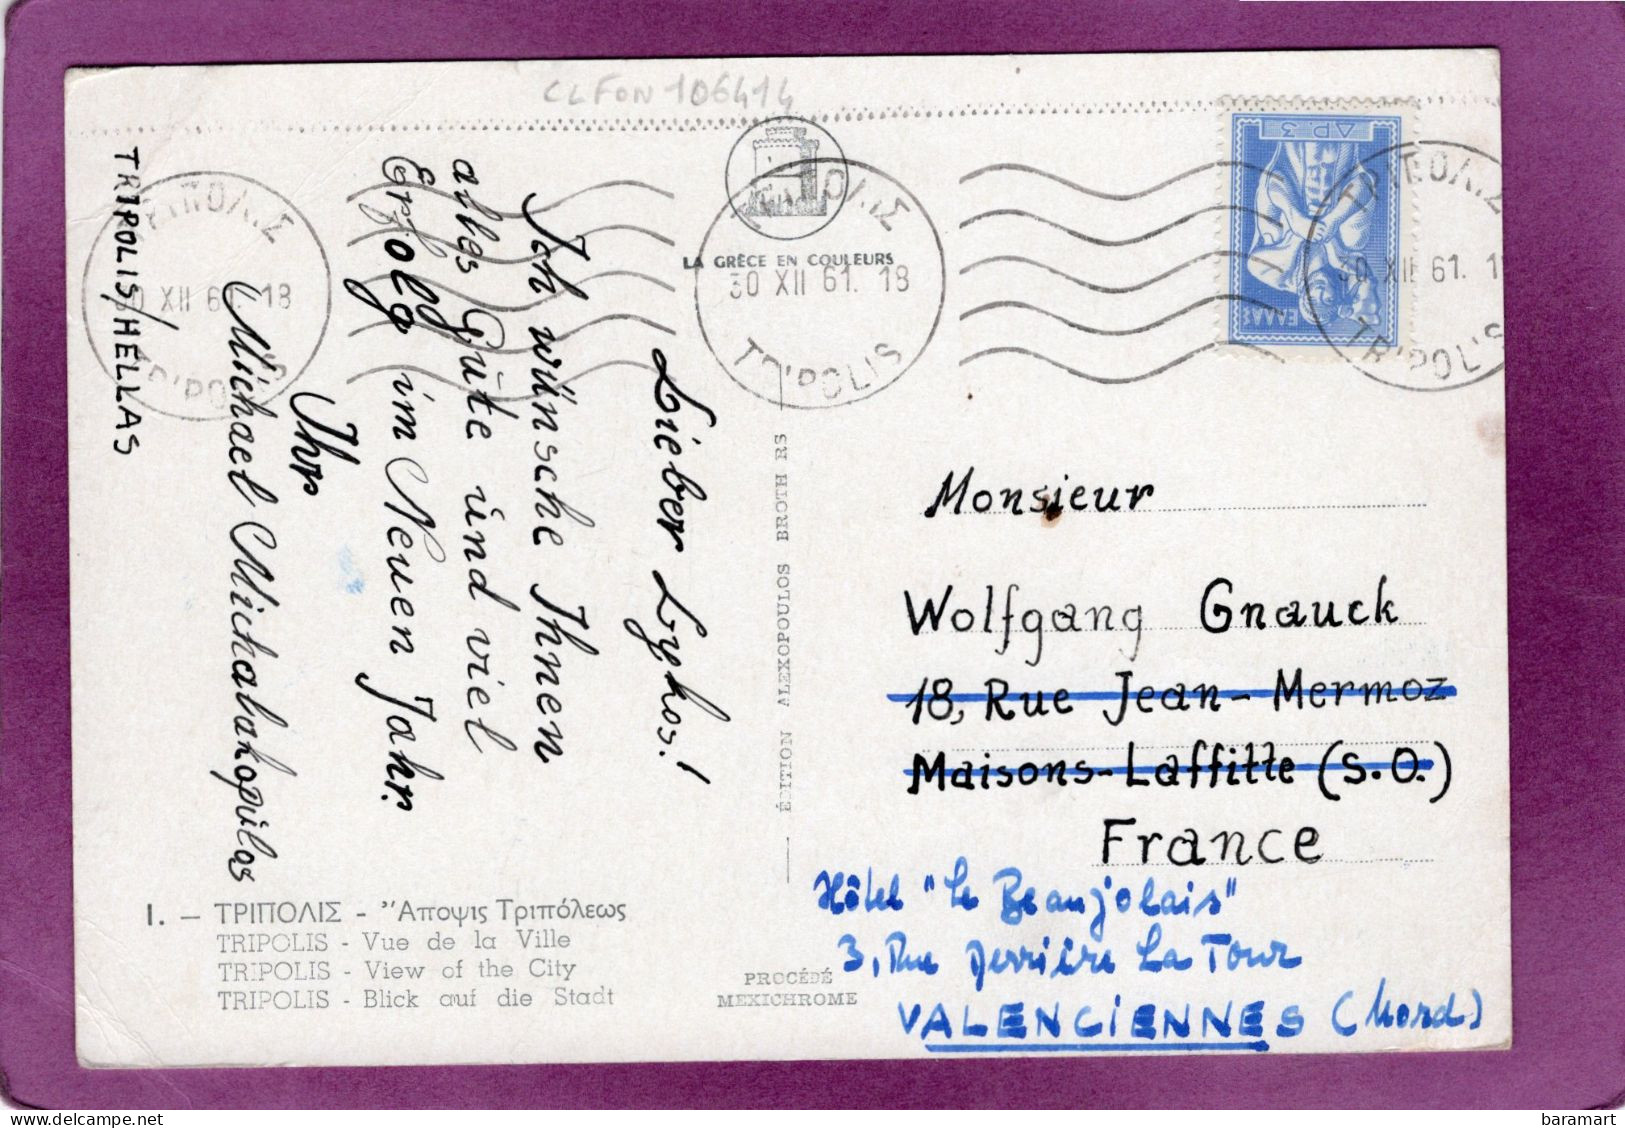 CLFON 106414
LA GRÈCE EN COULEURS
ΤΡΙΠΟΛΙΣ
30 XII 61. 18
TRIPOLIS
ΤΡΙΠΟΛΙΣ
30 XII 61. 18
TRIPOLIS
ΤΡΙΠΟΛΙΣ
30 XII 61. 1
TRIPOLIS
ΔΡ. 3
ΕΛΛΑΣ
Lieber Lykos!
Ich wünsche Ihnen
alles Gute und viel
Erfolg im Neuen Jahr.
Ihr
Michael Michalakopúlos
TRIPOLIS/HELLAS
ÉDITION ALEXOPOULOS BROTH RS
Monsieur
Wolfgang Gnauck
18, Rue Jean-Mermoz
Maisons-Laffitte (S.O.)
France
Hôtel "Le Beaujolais"
3, Rue Derrière La Tour
VALENCIENNES (Nord)
1. — ΤΡΙΠΟΛΙΣ - Ἄποψις Τριπόλεως
TRIPOLIS - Vue de la Ville
TRIPOLIS - View of the City
TRIPOLIS - Blick auf die Stadt
PROCÉDÉ
MEXICHROME
baramart